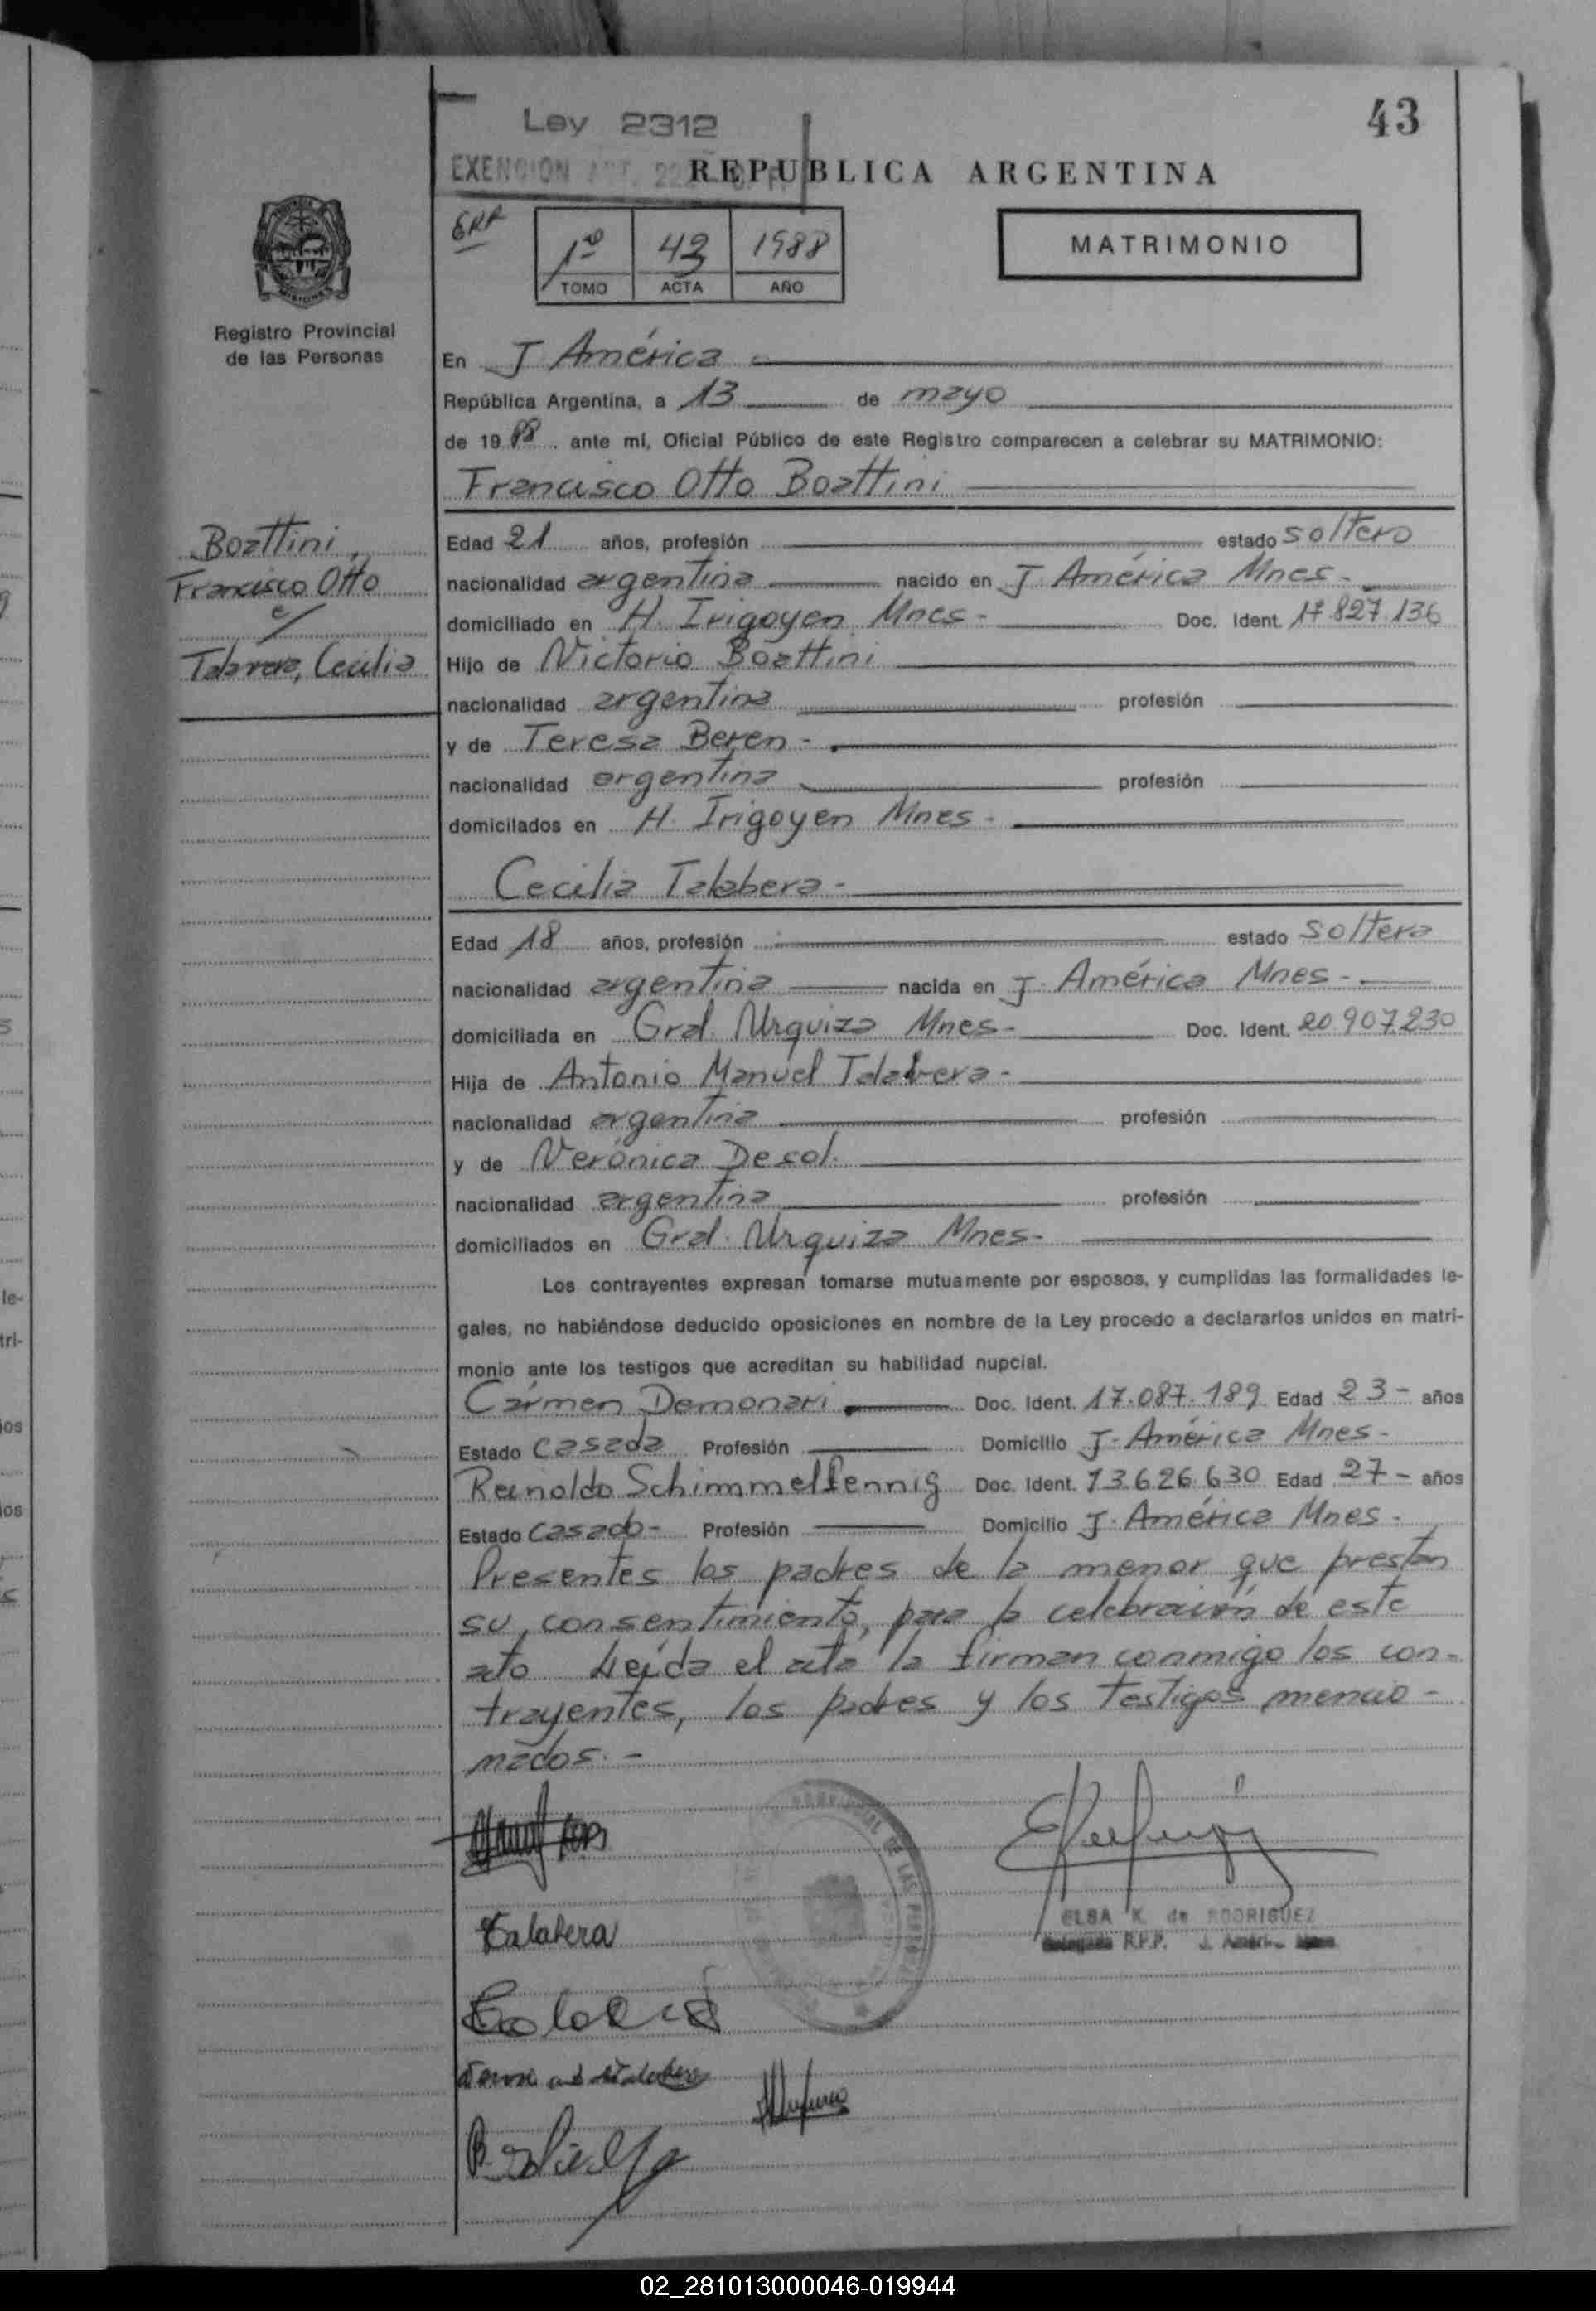 43
Ley 2312
EXENCION ART. 22
REPUBLICA ARGENTINA
1º 43 1988
TOMO ACTA AÑO
MATRIMONIO
MISIONES
Registro Provincial
de las Personas
En J América
República Argentina, a 13 de mayo
de 1988 ante mí, Oficial Público de este Registro comparecen a celebrar su MATRIMONIO:
Francisco Otto Boattini
Boattini,
Francisco Otto
c/
Talavera, Cecilia
Edad 21 años, profesión estado soltero
nacionalidad argentina nacido en J. América Mnes-
domiciliado en H. Irigoyen Mnes- Doc. Ident. 17.827.136
Hijo de Victorio Boattini
nacionalidad argentina profesión
y de Teresa Beren -
nacionalidad argentina profesión
domicilados en H. Irigoyen Mnes-
Cecilia Talabera-
Edad 18 años, profesión estado soltera
nacionalidad argentina nacida en J. América Mnes-
domiciliada en Gral. Urquiza Mnes- Doc. Ident. 20 907.230
Hija de Antonio Manuel Talabera-
nacionalidad argentina profesión
y de Verónica Desol.
nacionalidad argentina profesión
domiciliados en Gral. Urquiza Mnes-
Los contrayentes expresan tomarse mutuamente por esposos, y cumplidas las formalidades le-
gales, no habiéndose deducido oposiciones en nombre de la Ley procedo a declararlos unidos en matri-
monio ante los testigos que acreditan su habilidad nupcial.
Cármen Demonari Doc. Ident. 17.087.189 Edad 23- años
Estado Casada Profesión Domicilio J- América Mnes-
Reinoldo Schimmelfennig Doc. Ident. 13.626.630 Edad 27- años
Estado Casado- Profesión Domicilio J. América Mnes-
Presentes los padres de la menor que prestan
su consentimiento, para la celebración de este
ato Leída el acta la firman conmigo los con-
trayentes, los padres y los testigos mencio-
nados.-
Talabera
ELSA K. de RODRIGUEZ
Delegada R.P.P. J. América
02_281013000046-019944